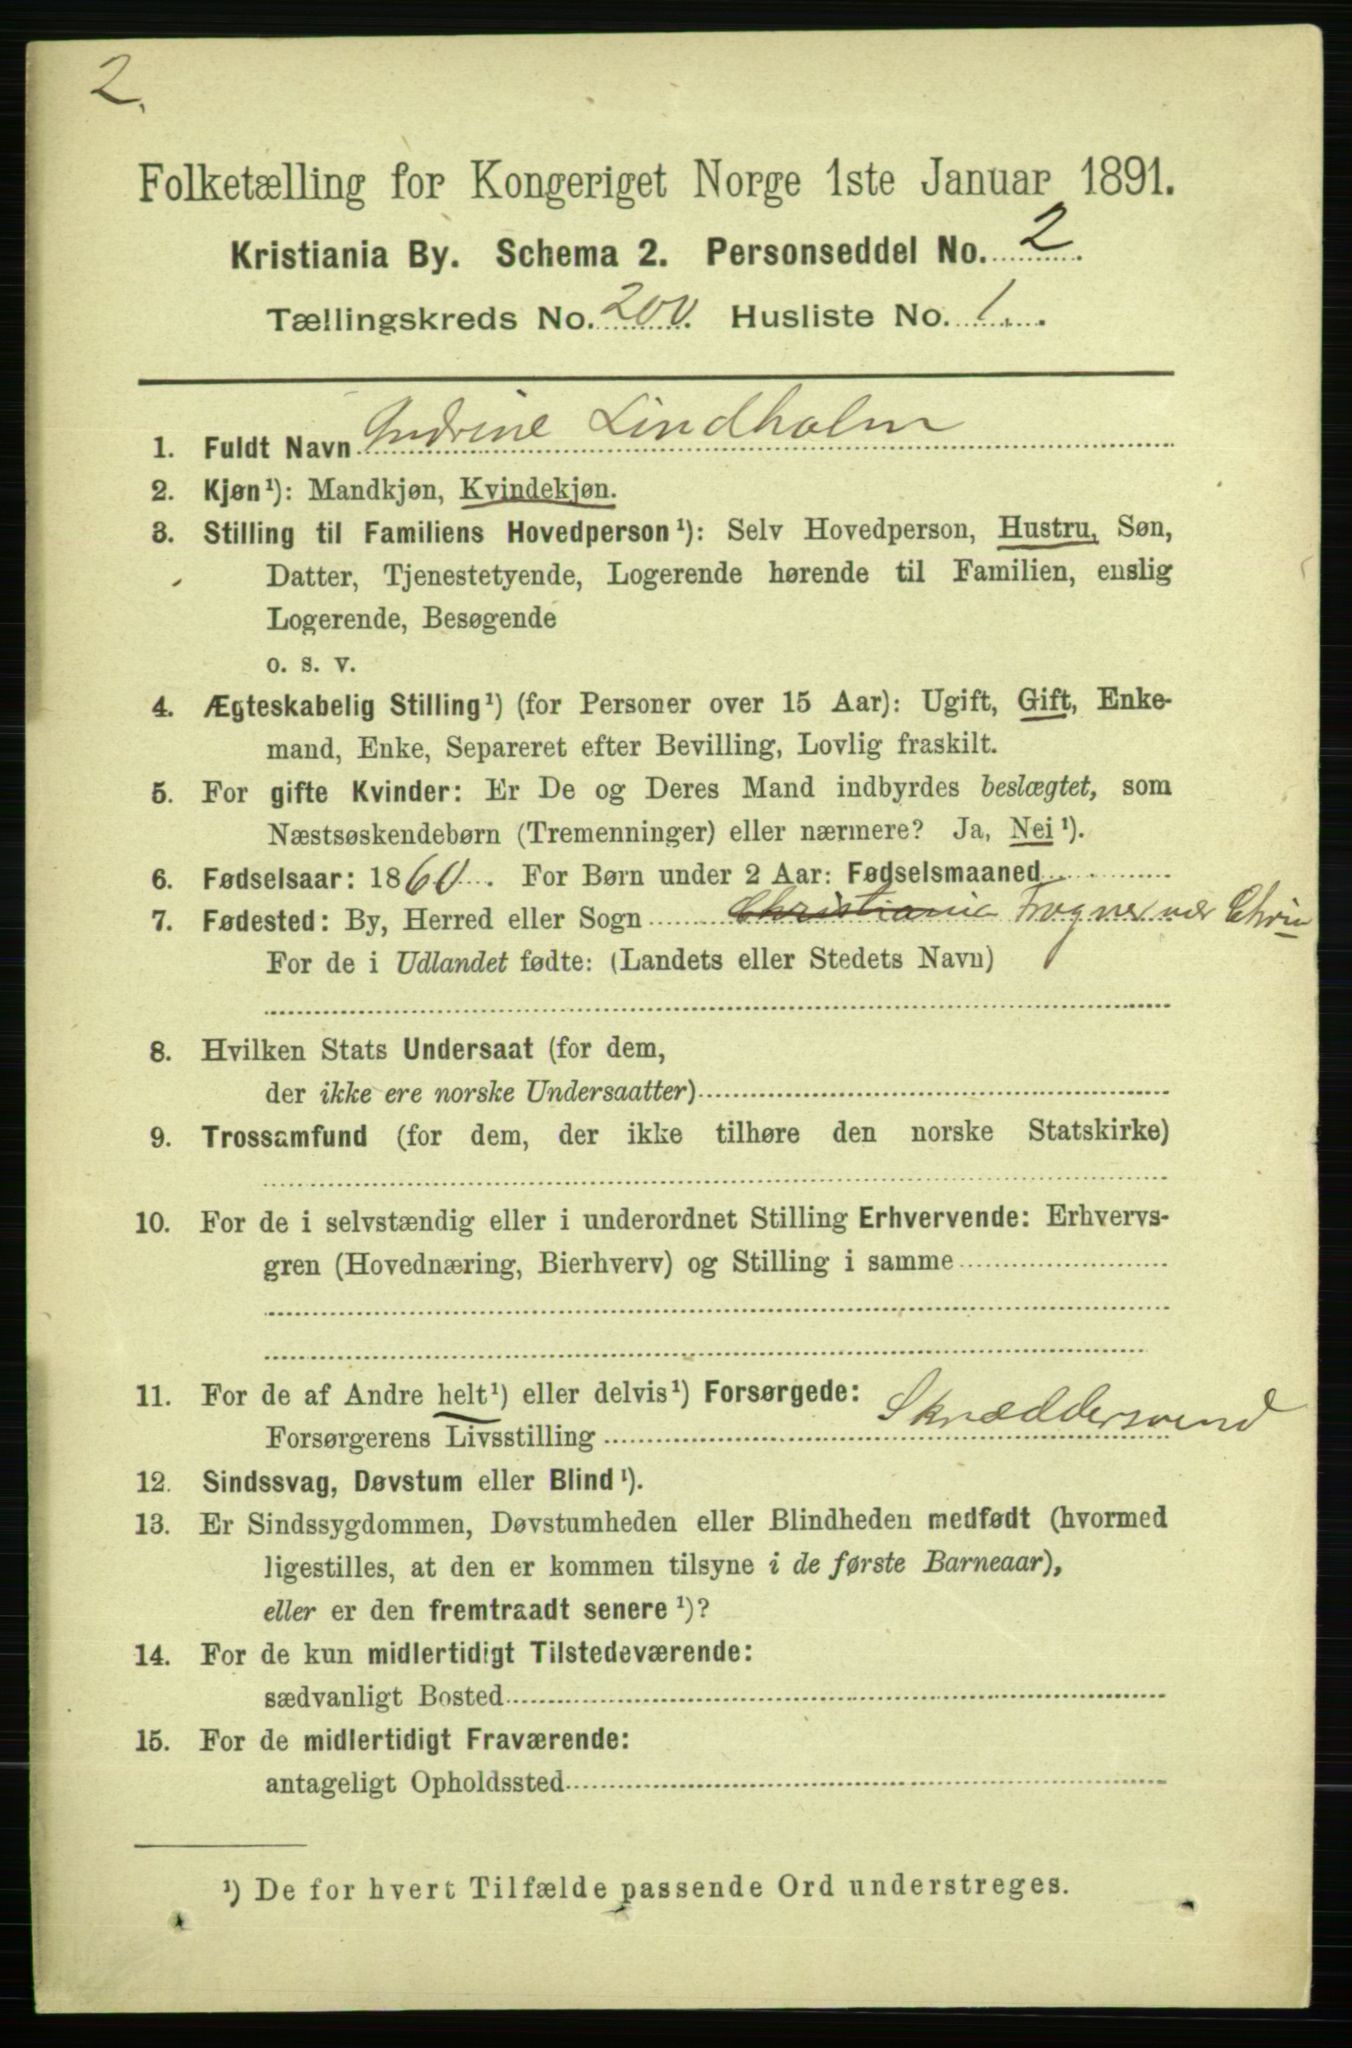 2.
Folketælling for Kongeriget Norge 1ste Januar 1891.
Kristiania By. Schema 2. Personseddel No. 2
Tællingskreds No. 200. Husliste No. 1.
1. Fuldt Navn Andrine Lindholm
2. Kjøn¹): Mandkjøn, Kvindekjøn.
3. Stilling til Familiens Hovedperson¹): Selv Hovedperson, Hustru, Søn,
Datter, Tjenestetyende, Logerende hørende til Familien, enslig
Logerende, Besøgende
o. s. v.
4. Ægteskabelig Stilling¹) (for Personer over 15 Aar): Ugift, Gift, Enke-
mand, Enke, Separeret efter Bevilling, Lovlig fraskilt.
5. For gifte Kvinder: Er De og Deres Mand indbyrdes beslægtet, som
Næstsøskendebørn (Tremenninger) eller nærmere? Ja, Nei¹).
6. Fødselsaar: 1860. For Børn under 2 Aar: Fødselsmaaned
7. Fødested: By, Herred eller Sogn Christiania Frogner ved Chria
For de i Udlandet fødte: (Landets eller Stedets Navn)
8. Hvilken Stats Undersaat (for dem,
der ikke ere norske Undersaatter)
9. Trossamfund (for dem, der ikke tilhøre den norske Statskirke)
10. For de i selvstændig eller i underordnet Stilling Erhvervende: Erhvervs-
gren (Hovednæring, Bierhverv) og Stilling i samme
11. For de af Andre helt¹) eller delvis¹) Forsørgede:
Forsørgerens Livsstilling Skræddersvend
12. Sindssvag, Døvstum eller Blind¹).
13. Er Sindssygdommen, Døvstumheden eller Blindheden medfødt (hvormed
ligestilles, at den er kommen tilsyne i de første Barneaar),
eller er den fremtraadt senere¹)?
14. For de kun midlertidigt Tilstedeværende:
sædvanligt Bosted
15. For de midlertidigt Fraværende:
antageligt Opholdssted
¹) De for hvert Tilfælde passende Ord understreges.